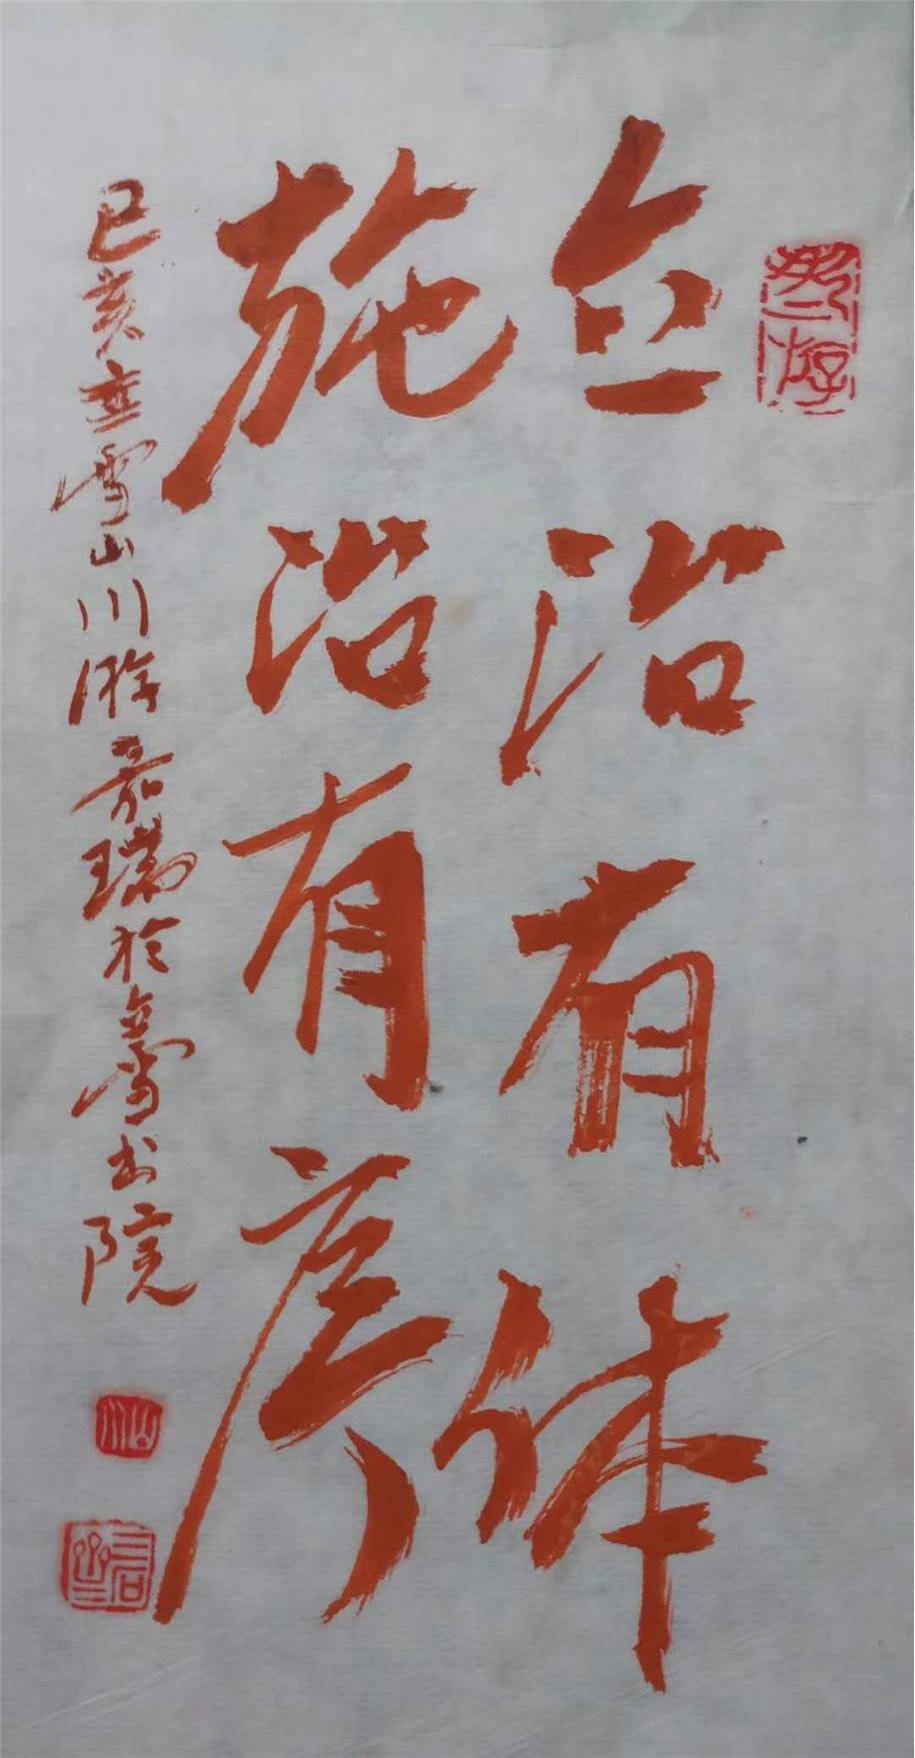 立治有体
施治有序
己亥立雪山川游嘉瑞於立雪书院
山川